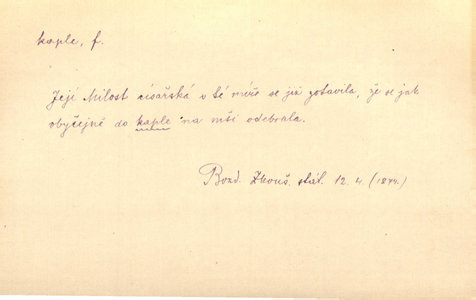 kaple, f.
Její Milost císařská v té míře se již zotavila, že se jak
obyčejně do kaple na mši odebrala.
Bozd. Zkouš. stát. 12. 4 (1874.)